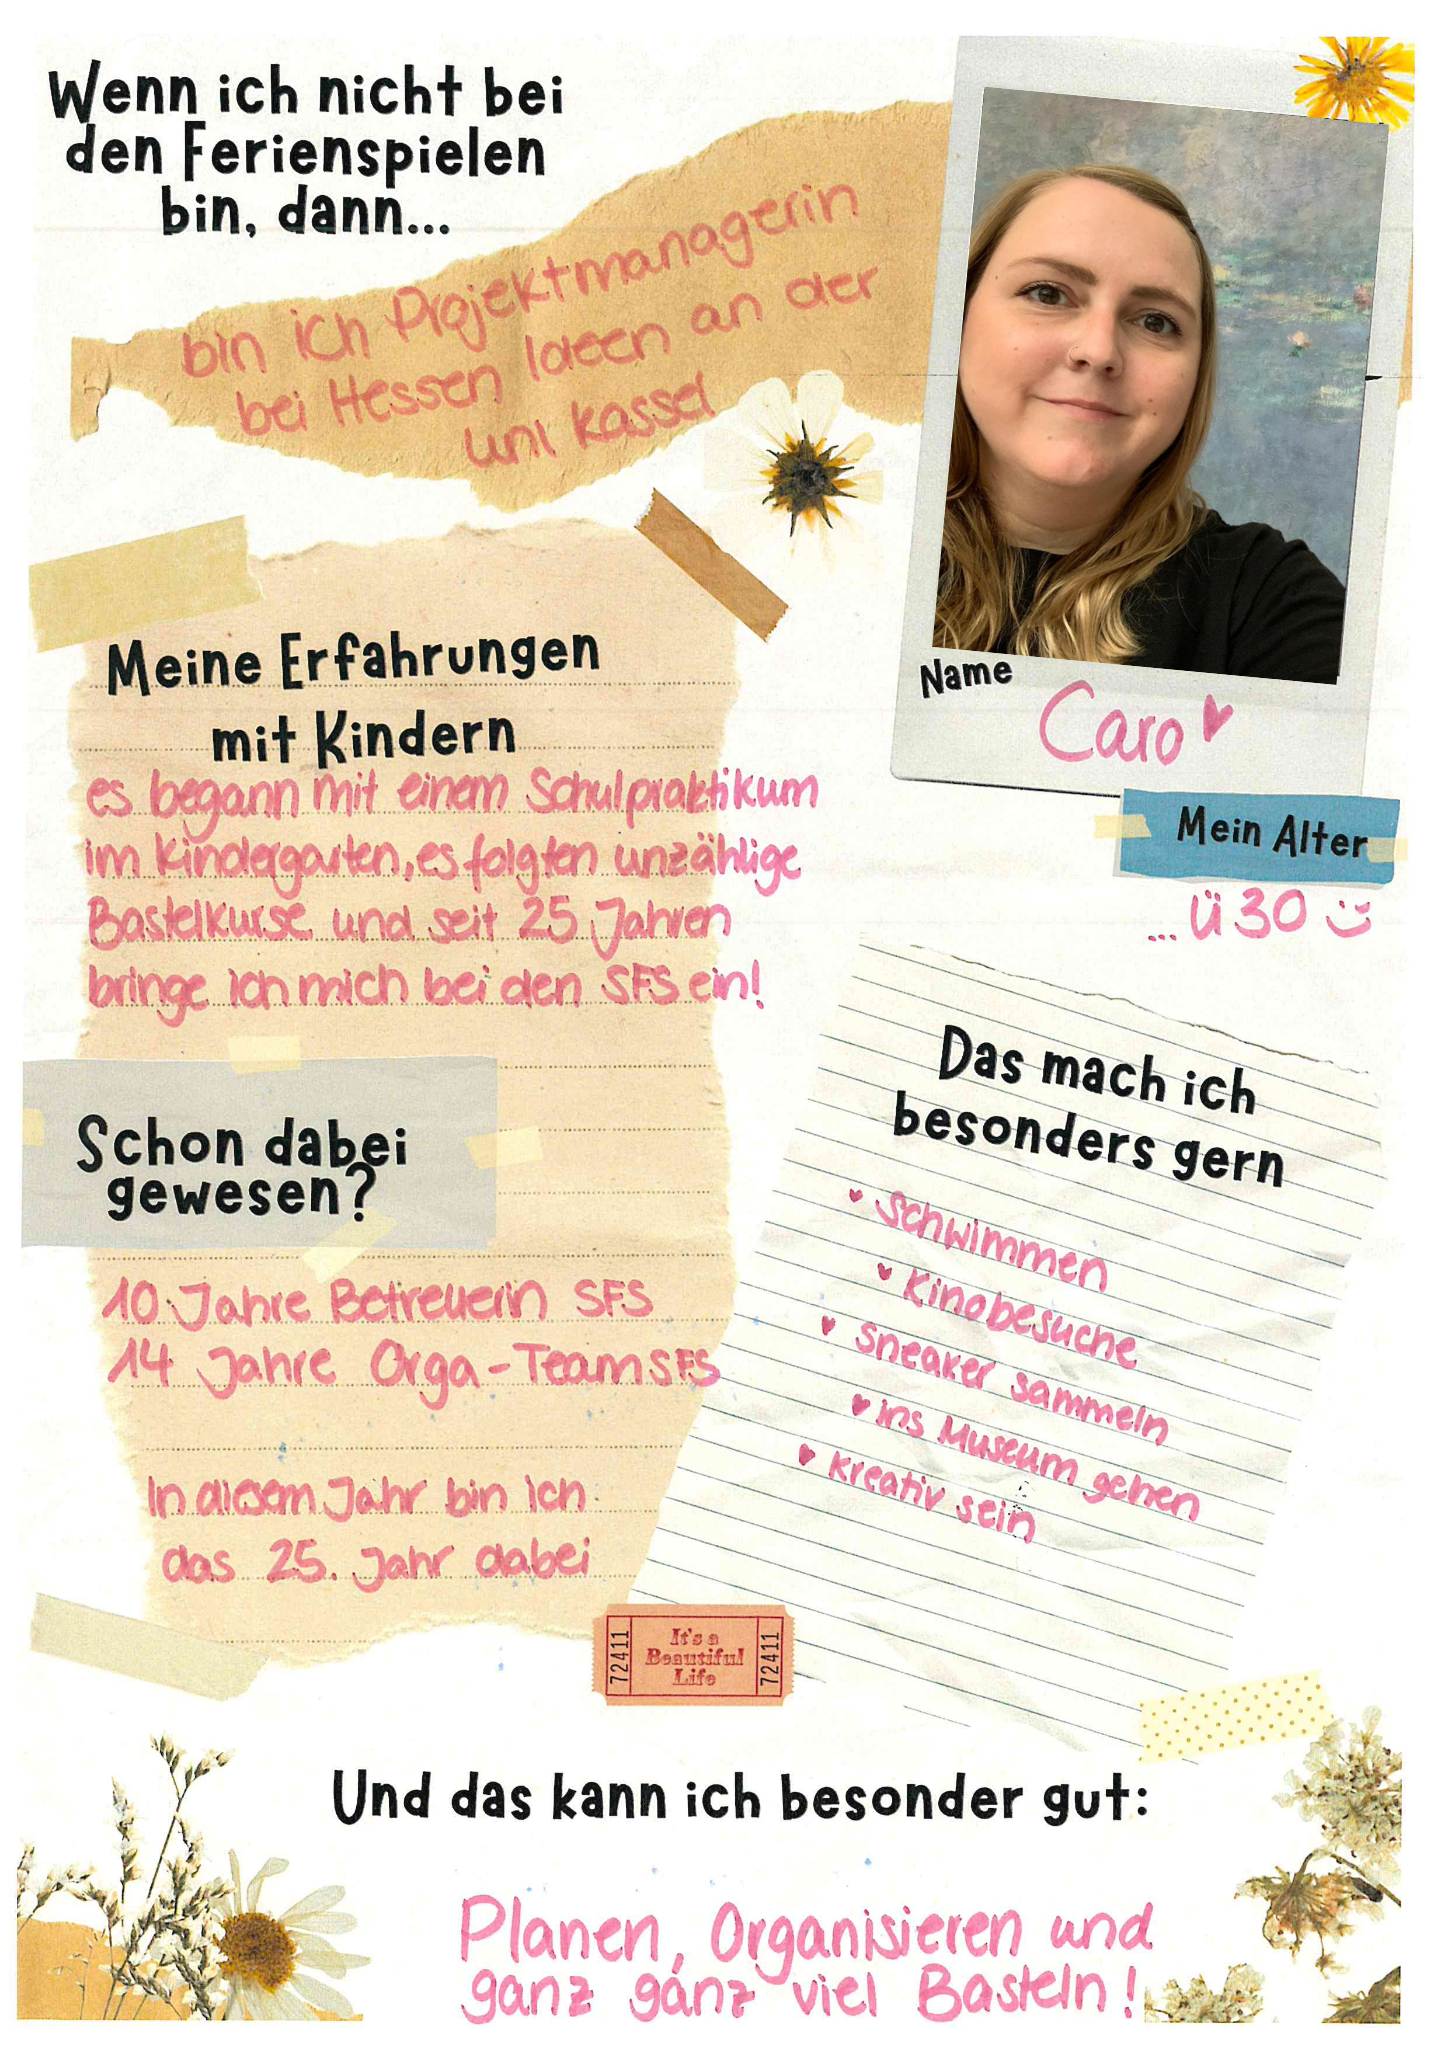 Wenn ich nicht bei
den Ferienspielen
bin, dann...
bin ich Projektmanagerin
bei Hessen Ideen an der
Uni Kassel
Name
Caro
Mein Alter
... ü 30
Meine Erfahrungen
mit Kindern
es begann mit einem Schulpraktikum
im Kindergarten, es folgten unzählige
Bastelkurse und seit 25 Jahren
bringe ich mich bei den SFS ein!
Schon dabei
gewesen?
10 Jahre Betreuerin SFS
14 Jahre Orga-Team SFS
In diesem Jahr bin ich
das 25. Jahr dabei
Das mach ich
besonders gern
Schwimmen
Kinobesuche
Sneaker sammeln
ins Museum gehen
kreativ sein
72411
It's a
Beautiful
Life
72411
Und das kann ich besonder gut:
Planen, Organisieren und
ganz ganz viel Basteln!